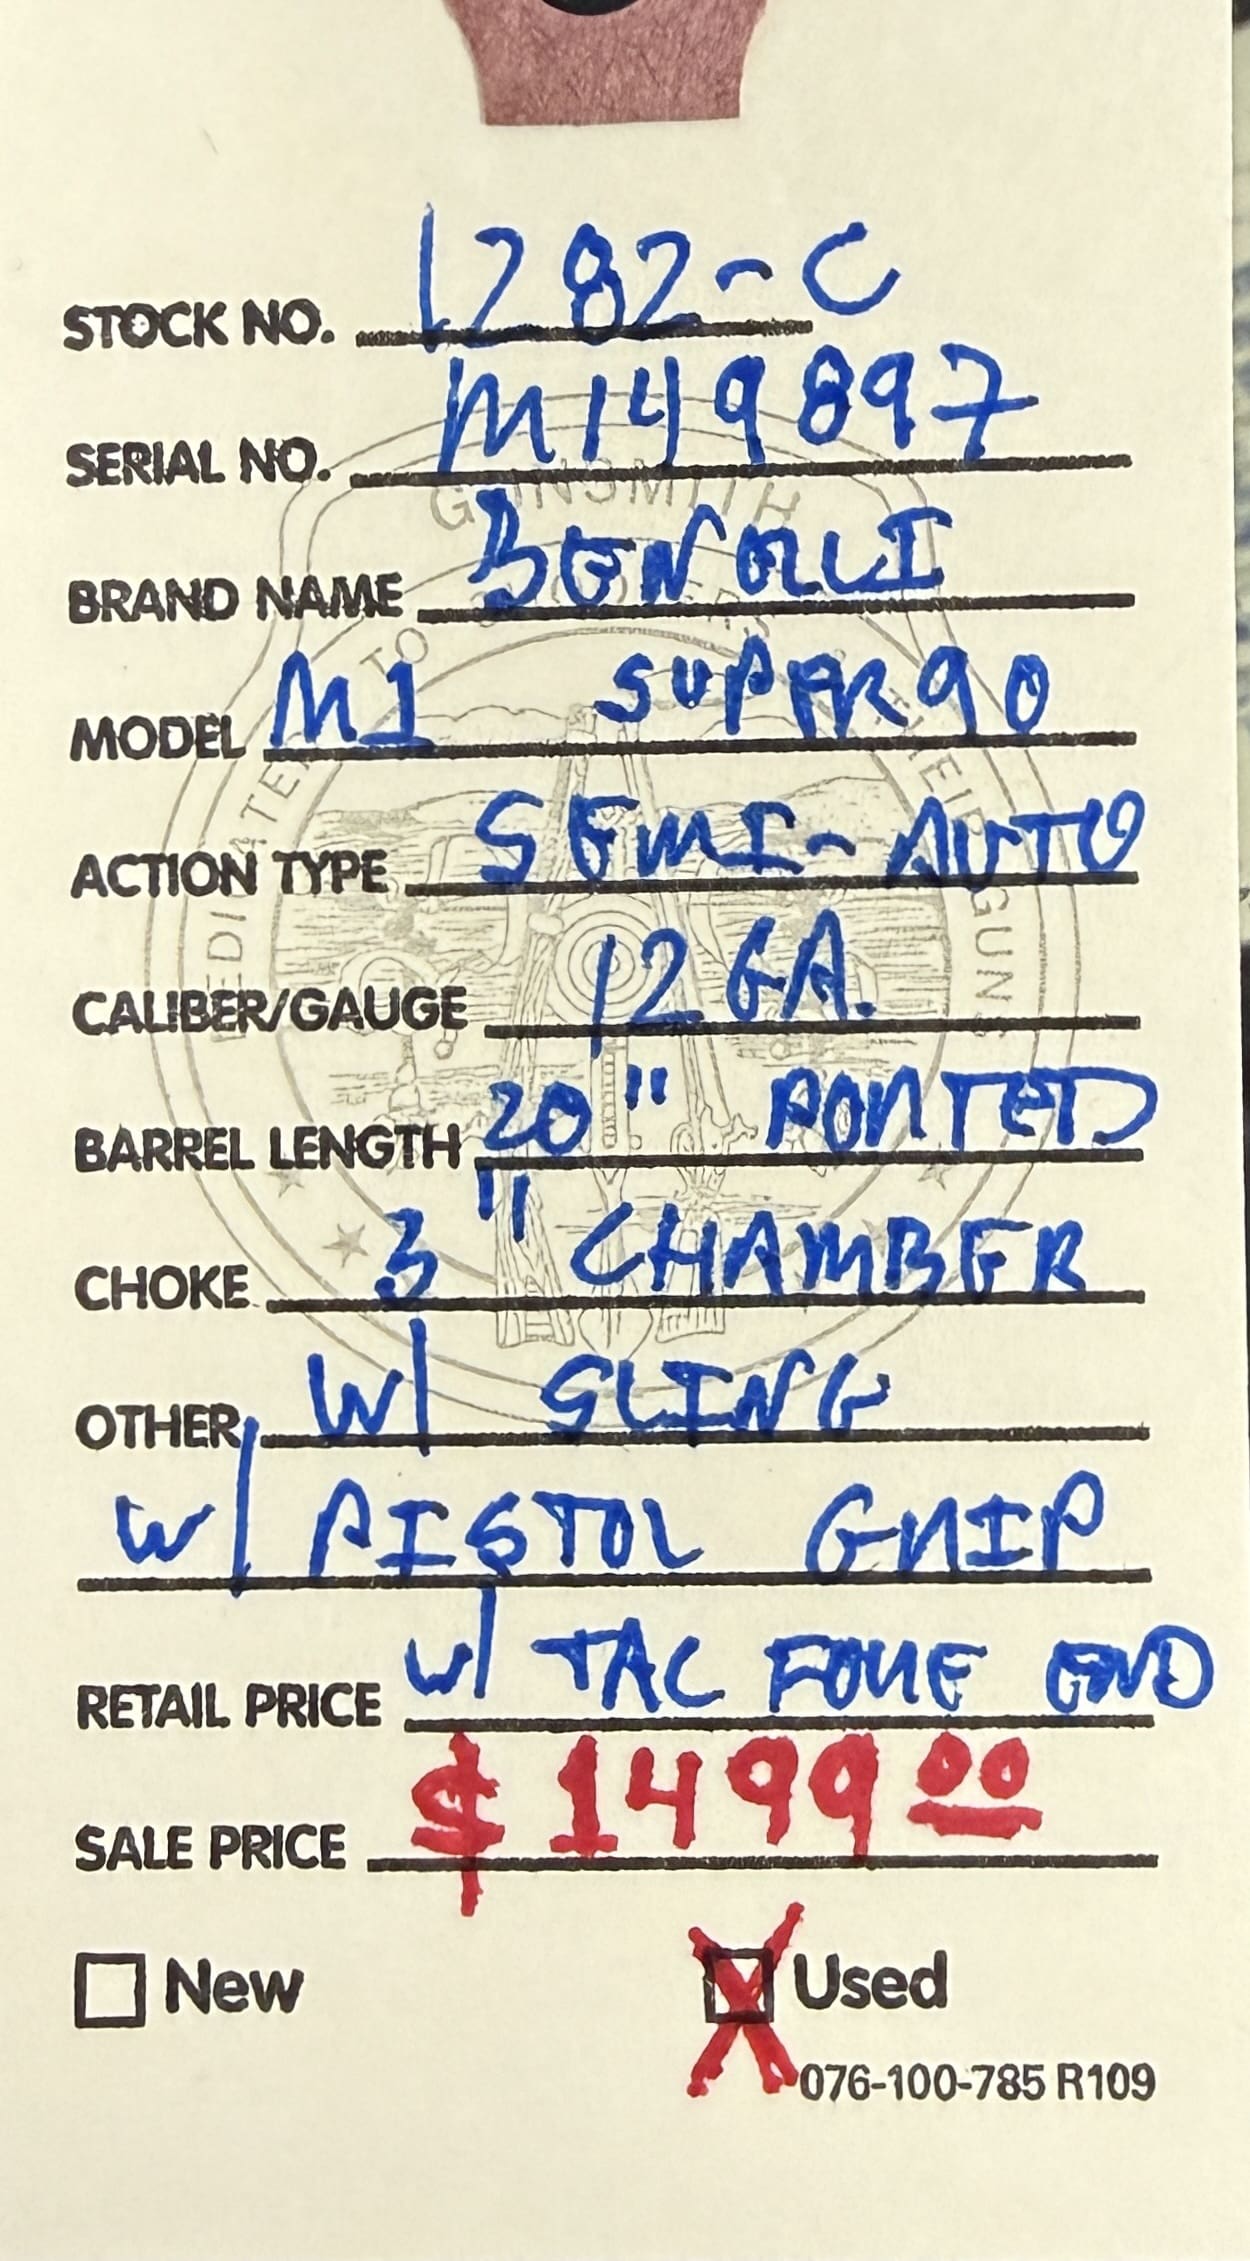 STOCK NO. 1282-C
SERIAL NO. M149897
BRAND NAME BENELLI
MODEL M1 SUPER 90
ACTION TYPE SEMI-AUTO
CALIBER/GAUGE 12 GA.
BARREL LENGTH 20" PORTED
CHOKE 3" CHAMBER
OTHER W/ SLING
W/ PISTOL GRIP
RETAIL PRICE W/ TAC FORE END
SALE PRICE $1499.00
New Used
076-100-785 R109
GUNSMITH